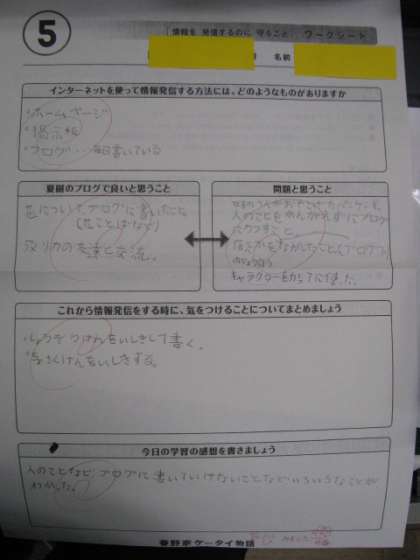 5
「情報を発信するのに守ること」ワークシート
名前
インターネットを使って情報発信する方法には、どのようなものがありますか
・ホームページ
・掲示板
・ブログ…毎日書いている
夏樹のブログで良いと思うこと
花について、ブログに書いたこと
(花ことばなど)
アメリカの友達と交流。
問題と思うこと
人のことをかんがえずにブログ
キャラクターをかってに使った
これから情報発信をする時に、気をつけることについてまとめましょう
・しょうぞうけんをいしきして書く。
・ちょさくけんをいしきする。
今日の学習の感想を書きましょう
人のことなど、ブログに書いていけないことなどいろいろなことが
わかった。
春野家ケータイ物語